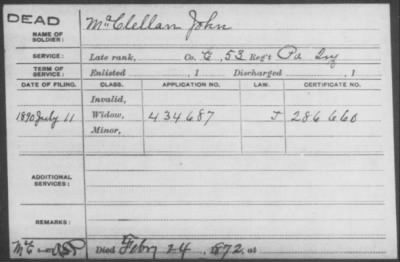 DEAD
NAME OF SOLDIER: McClellan John
SERVICE: Late rank, Co. E, 53 Reg't Pa Inf
TERM OF SERVICE: Enlisted , 1 Discharged , 1
DATE OF FILING. CLASS. APPLICATION NO. LAW. CERTIFICATE NO.
Invalid,
1890 July 11 Widow, 434687 J 286660
Minor,
ADDITIONAL SERVICES:
REMARKS:
McC Died Feby 24, 1872, at